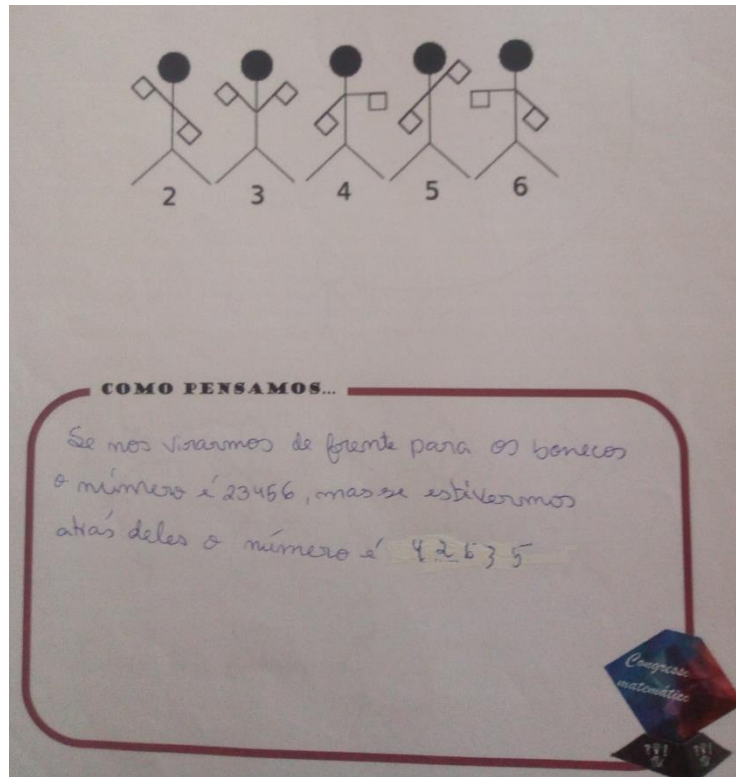 2 3 4 5 6
COMO PENSAMOS...
Se nos virarmos de frente para os bonecos
o número é 23456, mas se estivermos
atrás deles o número é 42635
Congresso
matemático